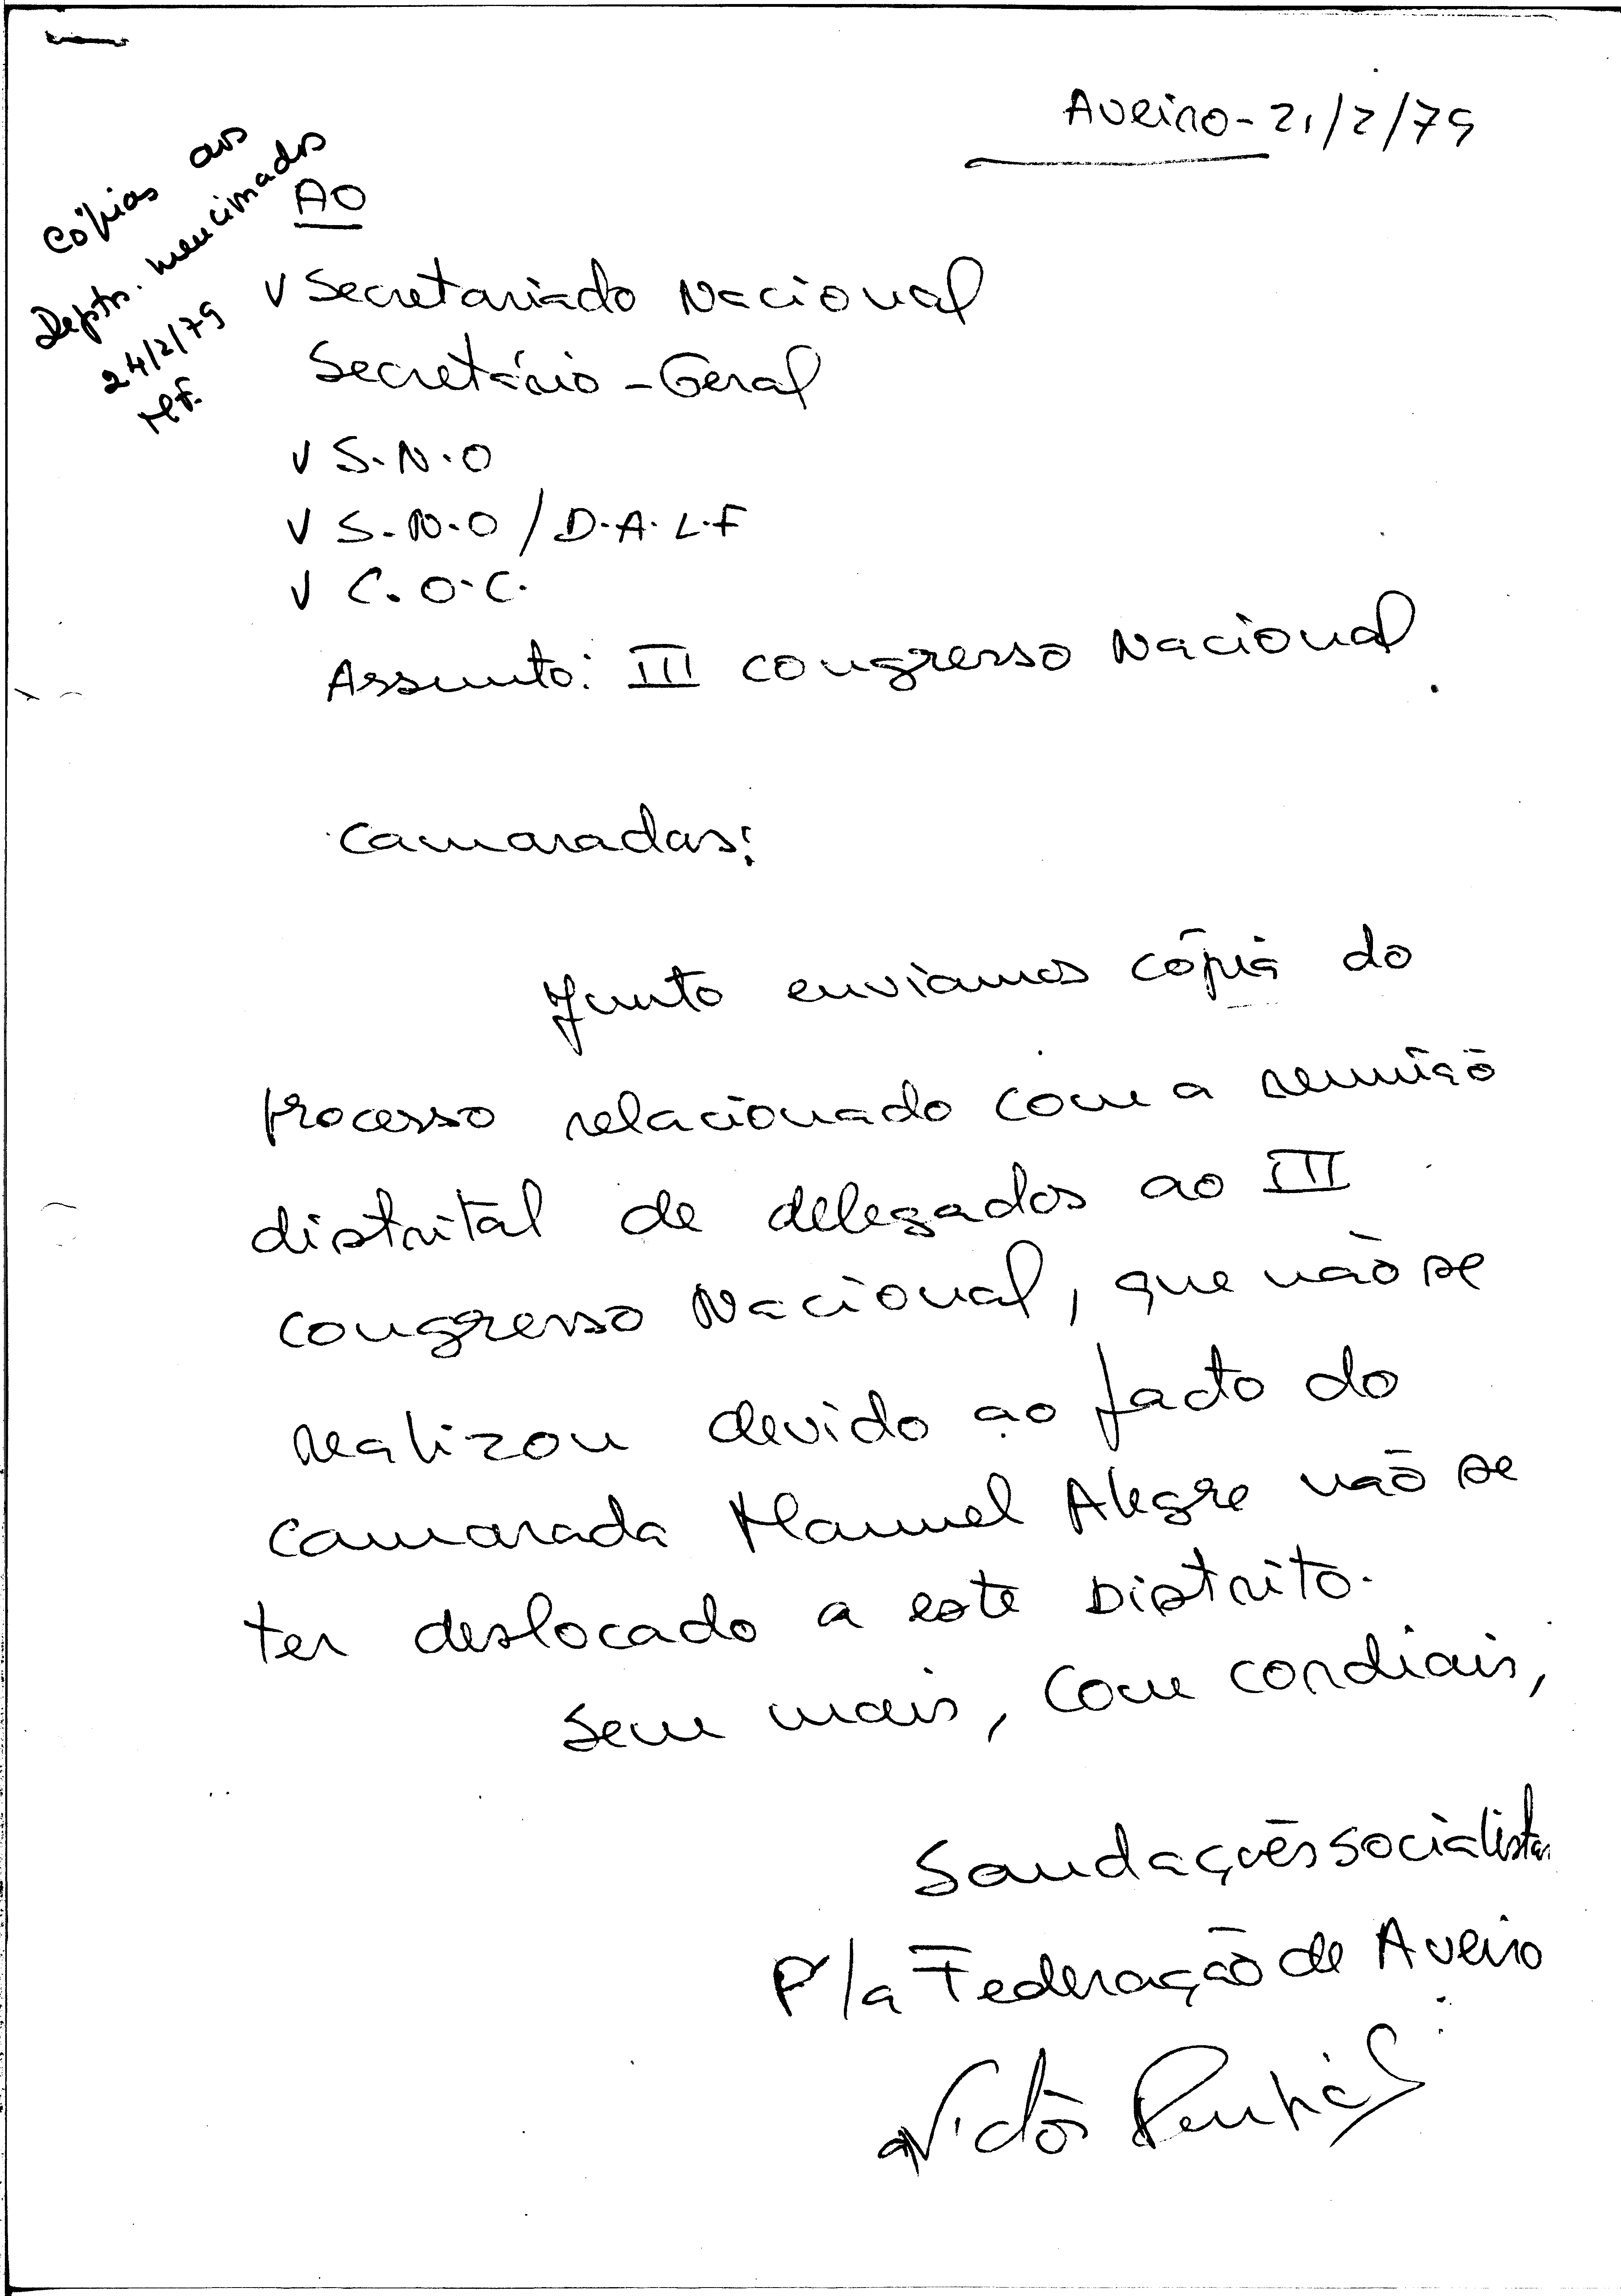 Aveiro - 21/2/79
Cópias aos
Deptos. mencionados
24/2/79
M.F.
AO
v Secretariado Nacional
Secretário - Geral
v S.N.O
v S.N.O / D.A.L.F
v C.O.C.
Assunto: III congresso Nacional
Camaradas:
Junto enviamos cópia do
processo relacionado com a reunião
distrital de delegados ao III
congresso Nacional, que não se
realizou devido ao facto do
camarada Manuel Alegre não se
ter deslocado a este Distrito.
Sem mais, com cordiais,
Saudações socialistas
P/a Federação de Aveiro